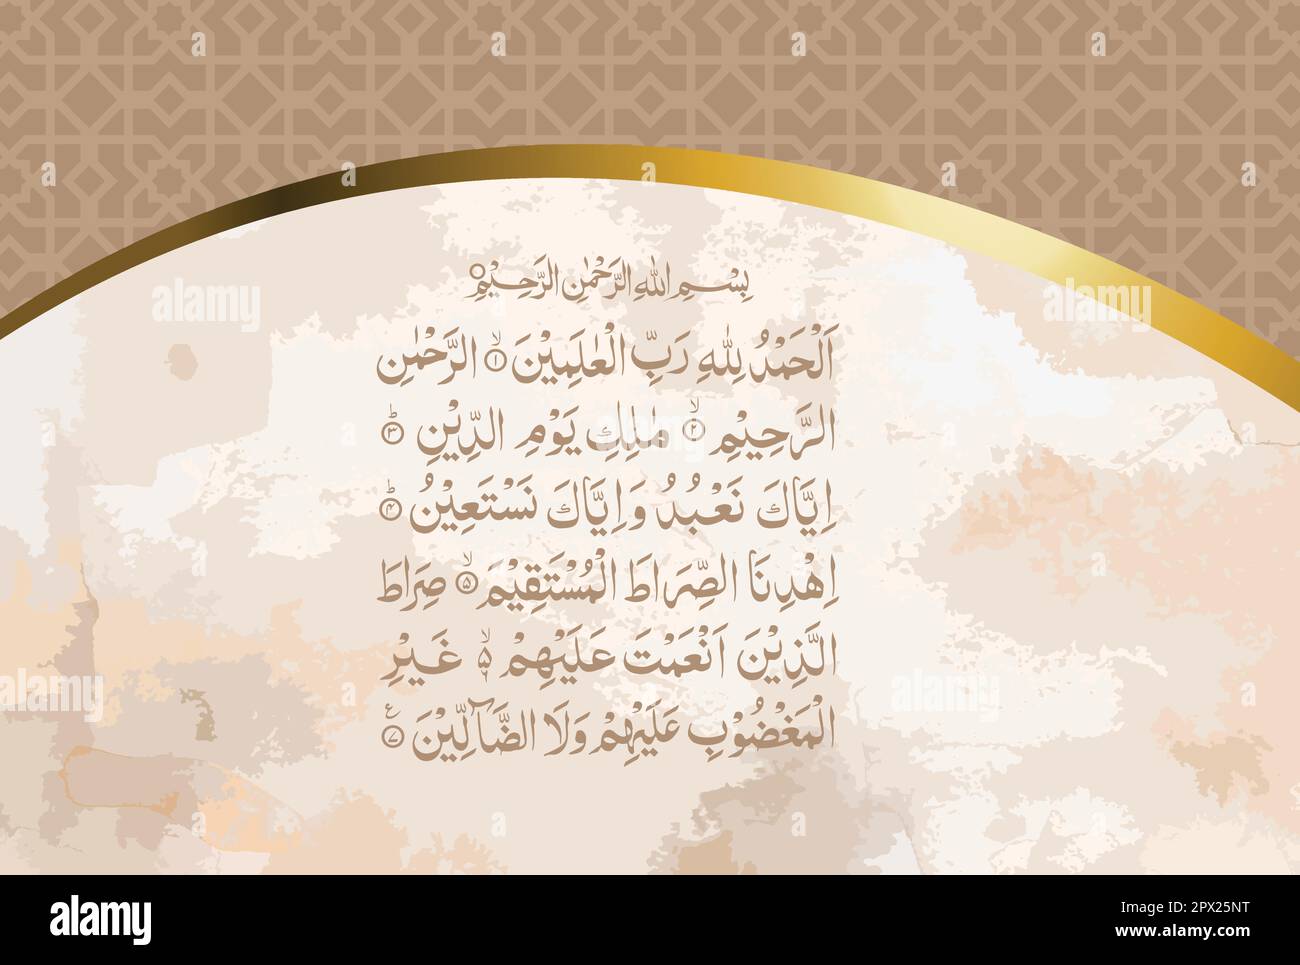 بِسْمِ اللهِ الرَّحْمٰنِ الرَّحِيْمِ
اَلْحَمْدُ لِلّٰهِ رَبِّ الْعٰلَمِيْنَ ۙ﴿۱﴾ الرَّحْمٰنِ
الرَّحِيْمِ ۙ﴿۲﴾ مٰلِكِ يَوْمِ الدِّيْنِ ؕ﴿۳﴾
اِيَّاكَ نَعْبُدُ وَاِيَّاكَ نَسْتَعِيْنُ ؕ﴿۴﴾
اِهْدِنَا الصِّرَاطَ الْمُسْتَقِيْمَ ۙ﴿۵﴾ صِرَاطَ
الَّذِيْنَ اَنْعَمْتَ عَلَيْهِمْ ۙ۬ۦ غَيْرِ
الْمَغْضُوْبِ عَلَيْهِمْ وَلَا الضَّآلِّيْنَ ﴿۷﴾
alamy
Image ID: 2PX25NT
www.alamy.com